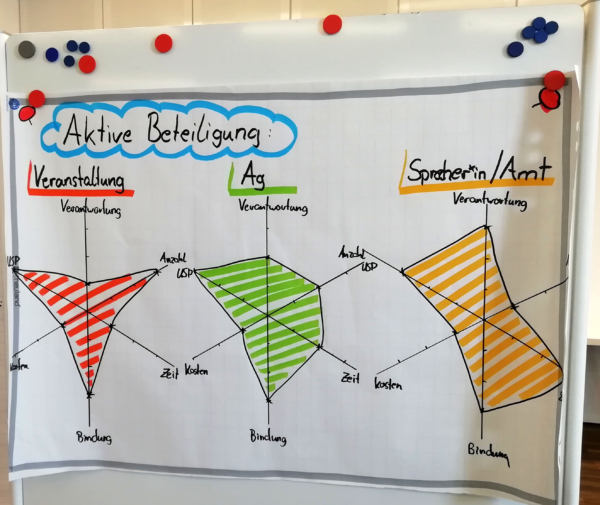 Aktive Beteiligung:
Veranstaltung
Ag
Sprecher*in/Amt
Verantwortung
Verantwortung
Verantwortung
USP
Anzahl
USP
Anzahl
USP
Kosten
Zeit
Kosten
Zeit
Kosten
Bindung
Bindung
Bindung